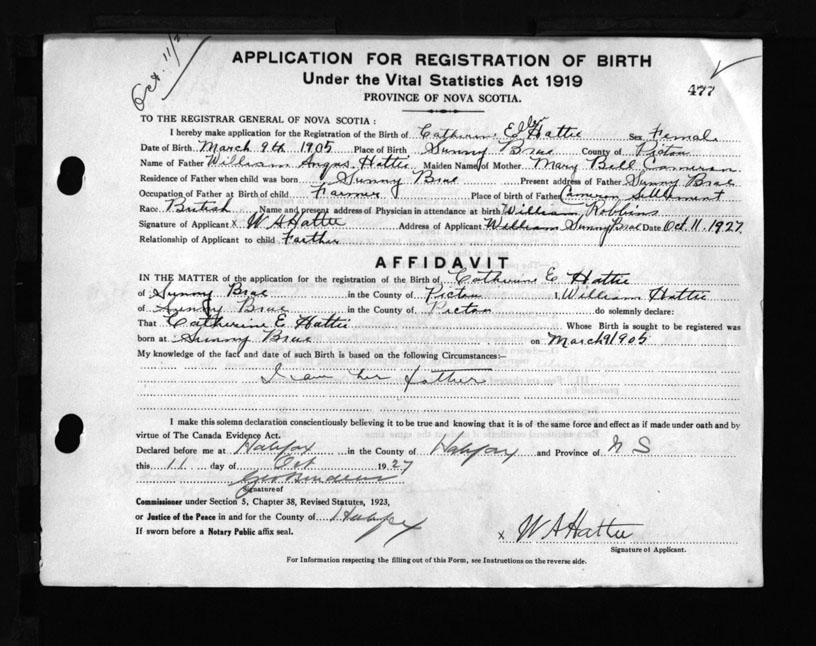 Oct. 11/2
APPLICATION FOR REGISTRATION OF BIRTH
Under the Vital Statistics Act 1919
477
PROVINCE OF NOVA SCOTIA.
TO THE REGISTRAR GENERAL OF NOVA SCOTIA :
I hereby make application for the Registration of the Birth of Catherine Hattie Sex Female
Date of Birth March 9th 1905 Place of Birth Sunny Brae County of Pictou
Name of Father William Angus Hattie Maiden Name of Mother Mary Bell Cameron
Residence of Father when child was born Sunny Brae Present address of Father Sunny Brae
Occupation of Father at Birth of child Farmer Place of birth of Father Cameron Settlement
Race British Name and present address of Physician in attendance at birth William Robbins
Signature of Applicant x W A Hattie Address of Applicant William Sunny Brae Date Oct. 11. 1927
Relationship of Applicant to child Farther
AFFIDAVIT
IN THE MATTER of the application for the registration of the Birth of Catherine E Hattie
of Sunny Brae in the County of Pictou I, William Hattie
of Sunny Brae in the County of Pictou do solemnly declare:
That Catherine E. Hattie Whose Birth is sought to be registered was
born at Sunny Brae on March 9 1905
My knowledge of the fact and date of such Birth is based on the following Circumstances:—
I am her father
I make this solemn declaration conscientiously believing it to be true and knowing that it is of the same force and effect as if made under oath and by
virtue of The Canada Evidence Act.
Declared before me at Halifax in the County of Halifax and Province of N S
this 11 day of Oct 1927
Signature of
Commissioner under Section 5, Chapter 38, Revised Statutes, 1923,
or Justice of the Peace in and for the County of Halifax
If sworn before a Notary Public affix seal.
x W A Hattie
Signature of Applicant.
For Information respecting the filling out of this Form, see Instructions on the reverse side.